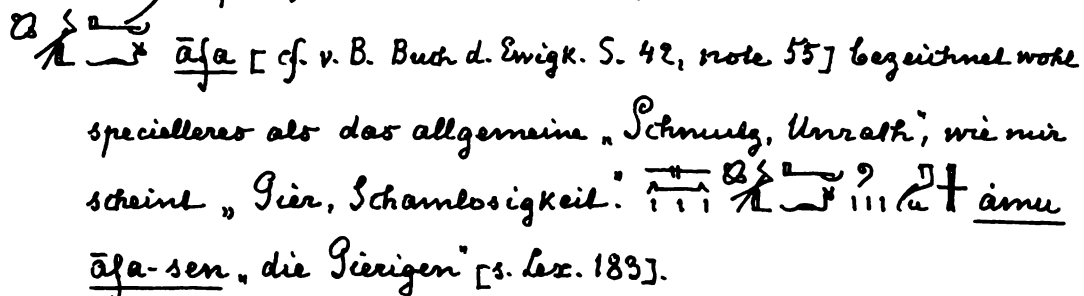 āfa [cf. v. B. Buch d. Ewigk. S. 42, note 55] bezeichnet wohl
specielleres als das allgemeine „Schmutz, Unrath“, wie mir
scheint „Gier, Schamlosigkeit.“ ȧmu
āfa-sen „die Gierigen“ [s. Lex. 183].